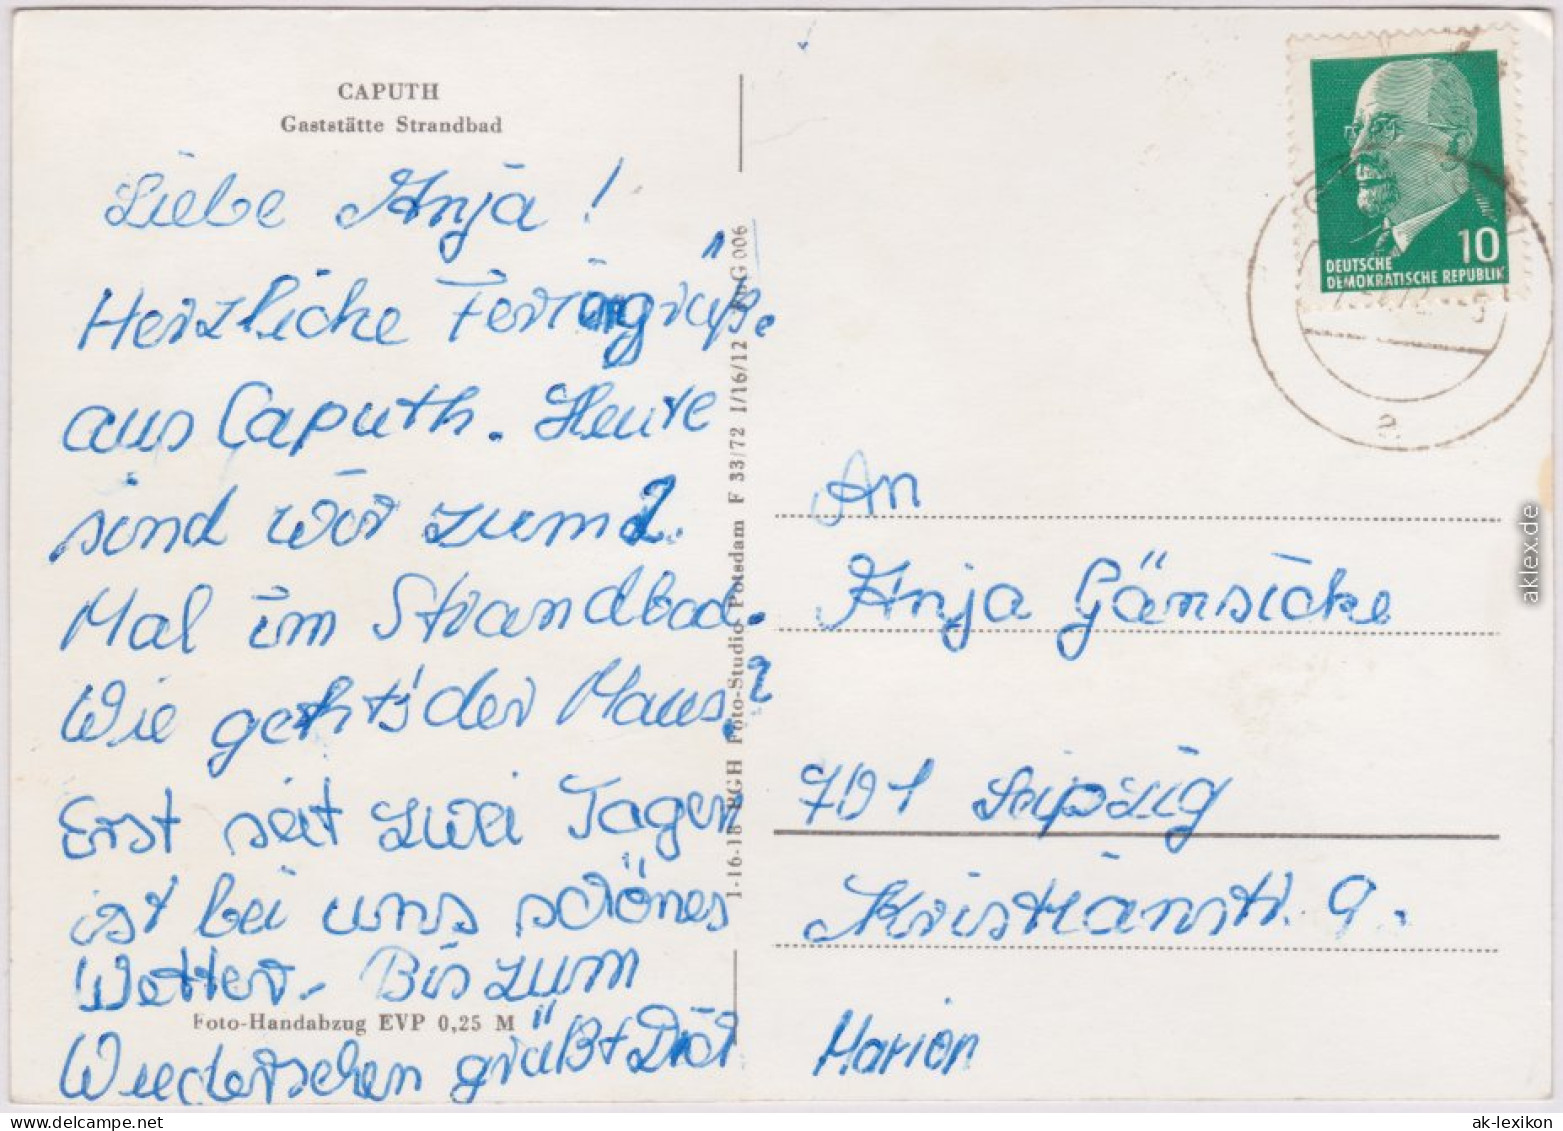 CAPUTH
Gaststätte Strandbad
Liebe Anja!
Herzliche Feriengrüße
aus Caputh. Heute
sind wir zum 2.
Mal im Strandbad.
Wie geht's der Maus?
Erst seit zwei Tagen
ist bei uns schönes
Wetter. Bis zum
Wiedersehen grüßt Dich
Foto-Handabzug EVP 0,25 M
1-16-18 BGH Foto-Studio Potsdam F 33/72 I/16/12 G 006
10
DEUTSCHE
DEMOKRATISCHE REPUBLIK
a
An
Anja Gänsicke
701 Leipzig
Kristianstr. 9.
Marion
aklex.de
ak-lexikon